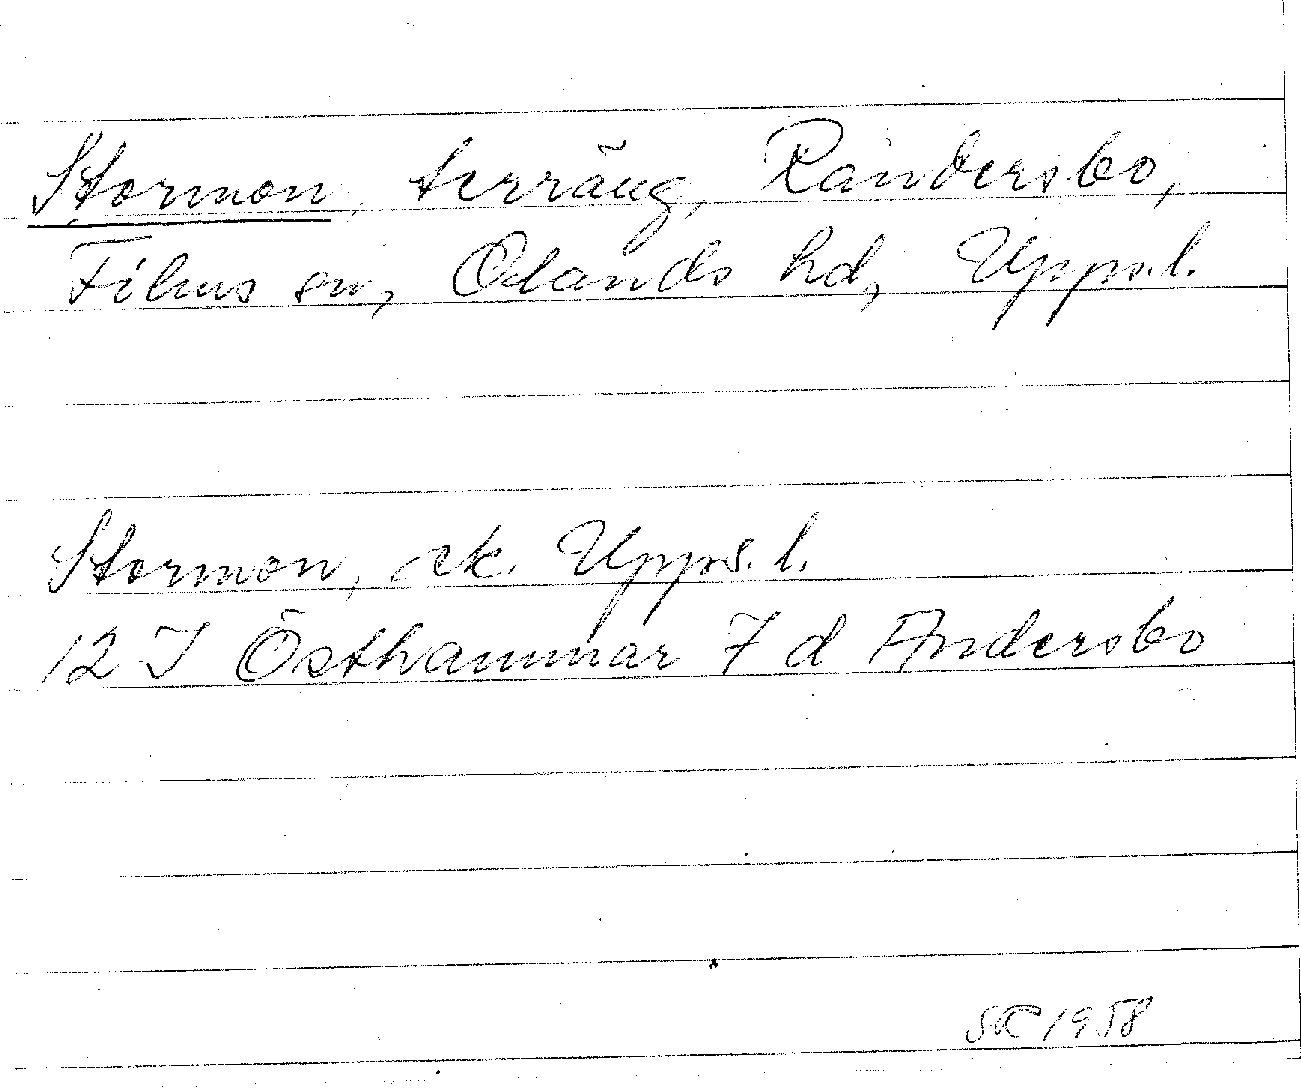 Stormon, terräng, Rändersbo,
Films sn, Olands hd, Upps. l.
Stormon, ek. Upps. l.
12 I Östhammar 7 d Andersbo
SR 1958